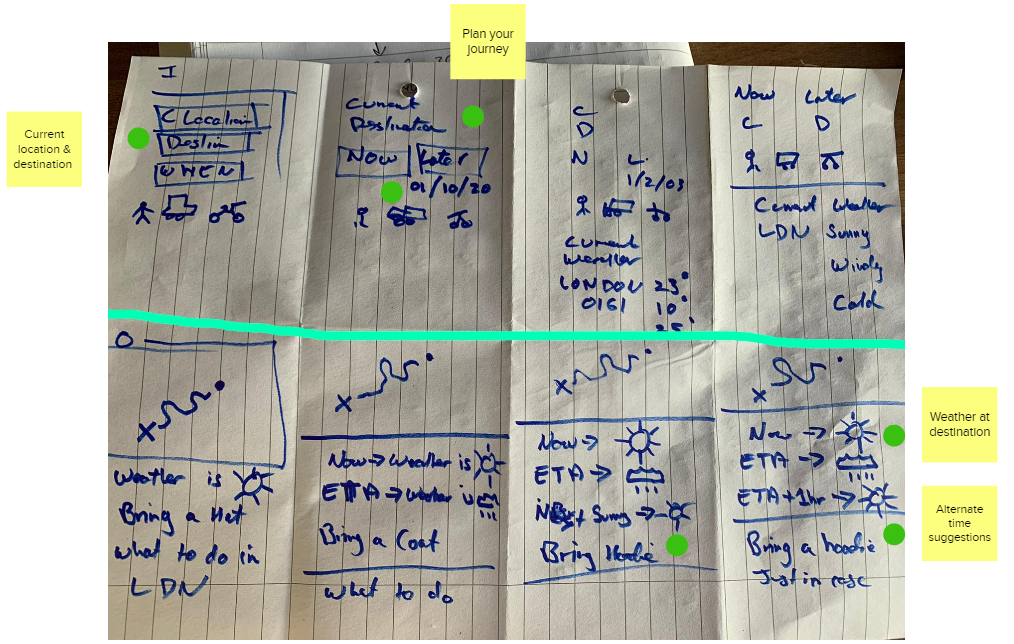 Plan your
journey
Current
location &
destination
I
C Location
Destin
WHEN
Current
Destination
Now Later
01/10/20
C
D
N L.
1/2/03
Current
Weather
LONDON 23°
0161 10°
25°
Now Later
C D
Current Weather
LDN Sunny
Windy
Cold
O
X
Weather is
Bring a Hat
what to do in
LDN
X
Now → Weather is
ETA → Weather is
Bring a Coat
what to do
X
Now →
ETA →
Sunny →
Bring Hoodie
X
Now →
ETA →
ETA + 1hr →
Bring a hoodie
Just in case
Weather at
destination
Alternate
time
suggestions